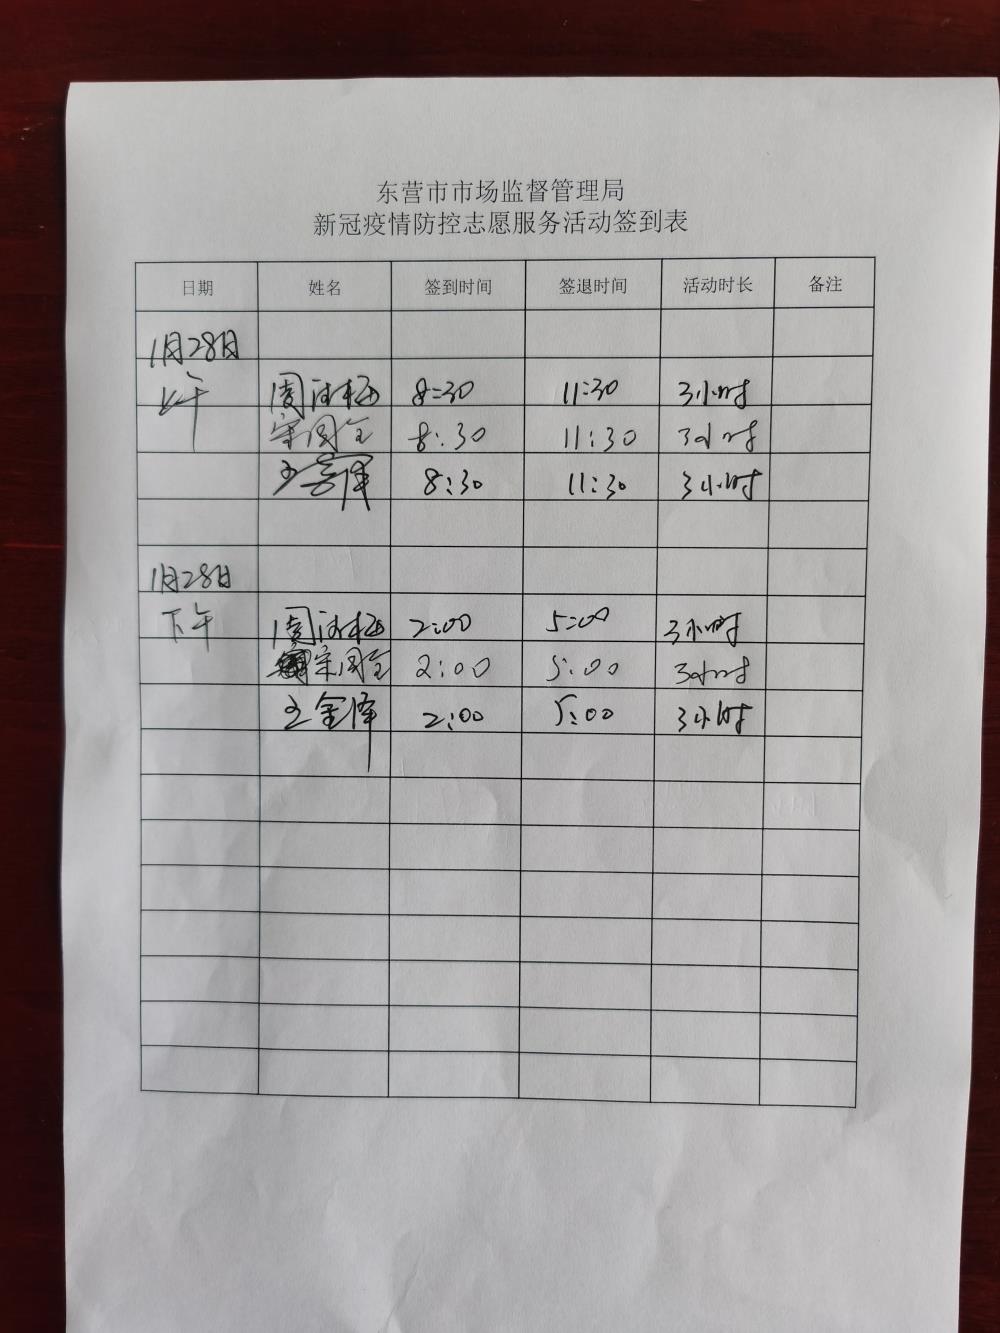 东营市市场监督管理局
新冠疫情防控志愿服务活动签到表
日期 姓名 签到时间 签退时间 活动时长 备注
1月28日
上午 周 8:30 11:30 3小时
宋国全 8:30 11:30 3小时
王金泽 8:30 11:30 3小时
1月28日
下午 周 2:00 5:00 3小时
宋国全 2:00 5:00 3小时
王金泽 2:00 5:00 3小时